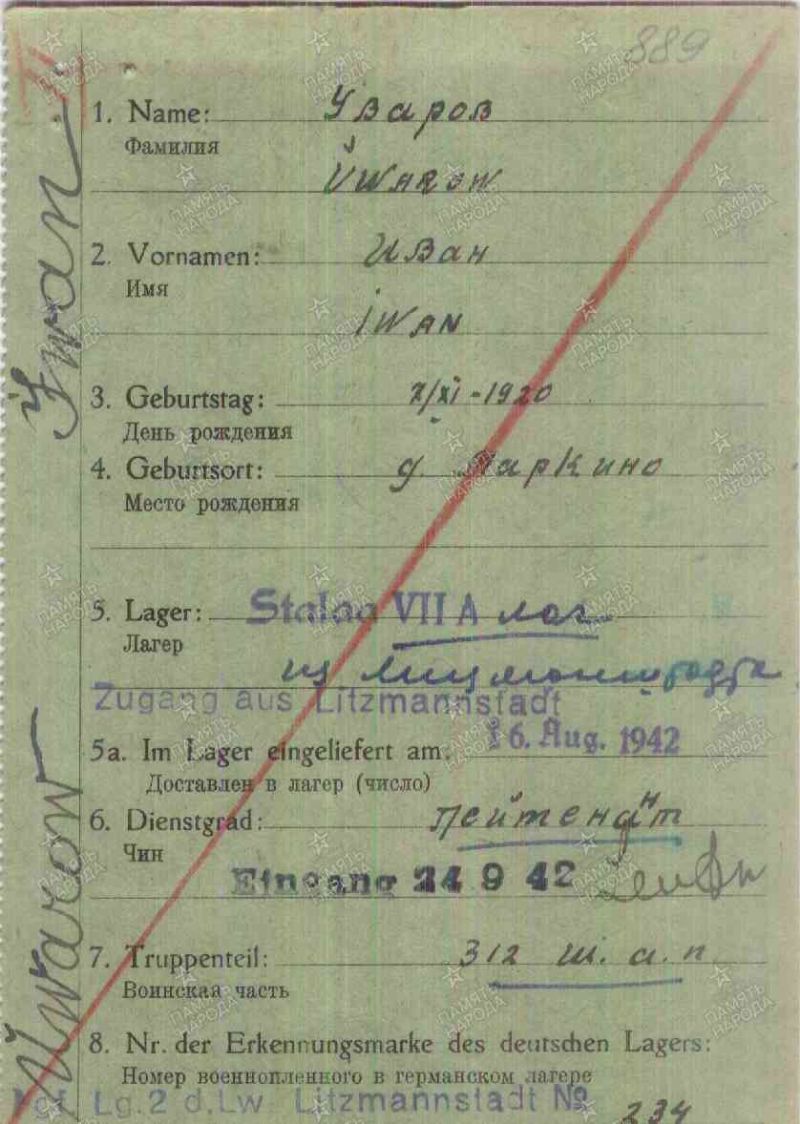 889
1. Name: Уваров
Фамилия
UWAROW
2. Vornamen: Иван
Имя
IWAN
3. Geburtstag: X/XI-1920
День рождения
4. Geburtsort: д. Паркино
Место рождения
5. Lager: Stalag VII A лаг.
Лагер
из Лицманштадта
Zugang aus Litzmannstadt
5a. Im Lager eingeliefert am: 16. Aug. 1942
Доставлен в лагер (число)
6. Dienstgrad: Лейтенант
Чин
Eingang 24 9 42
7. Truppenteil: 312 ш.а.п.
Воинская часть
8. Nr. der Erkennungsmarke des deutschen Lagers:
Номер военнопленного в германском лагере
Kgf. Lg. 2 d. Lw Litzmannstadt № 234
Uwarow Iwan
ПАМЯТЬ НАРОДА